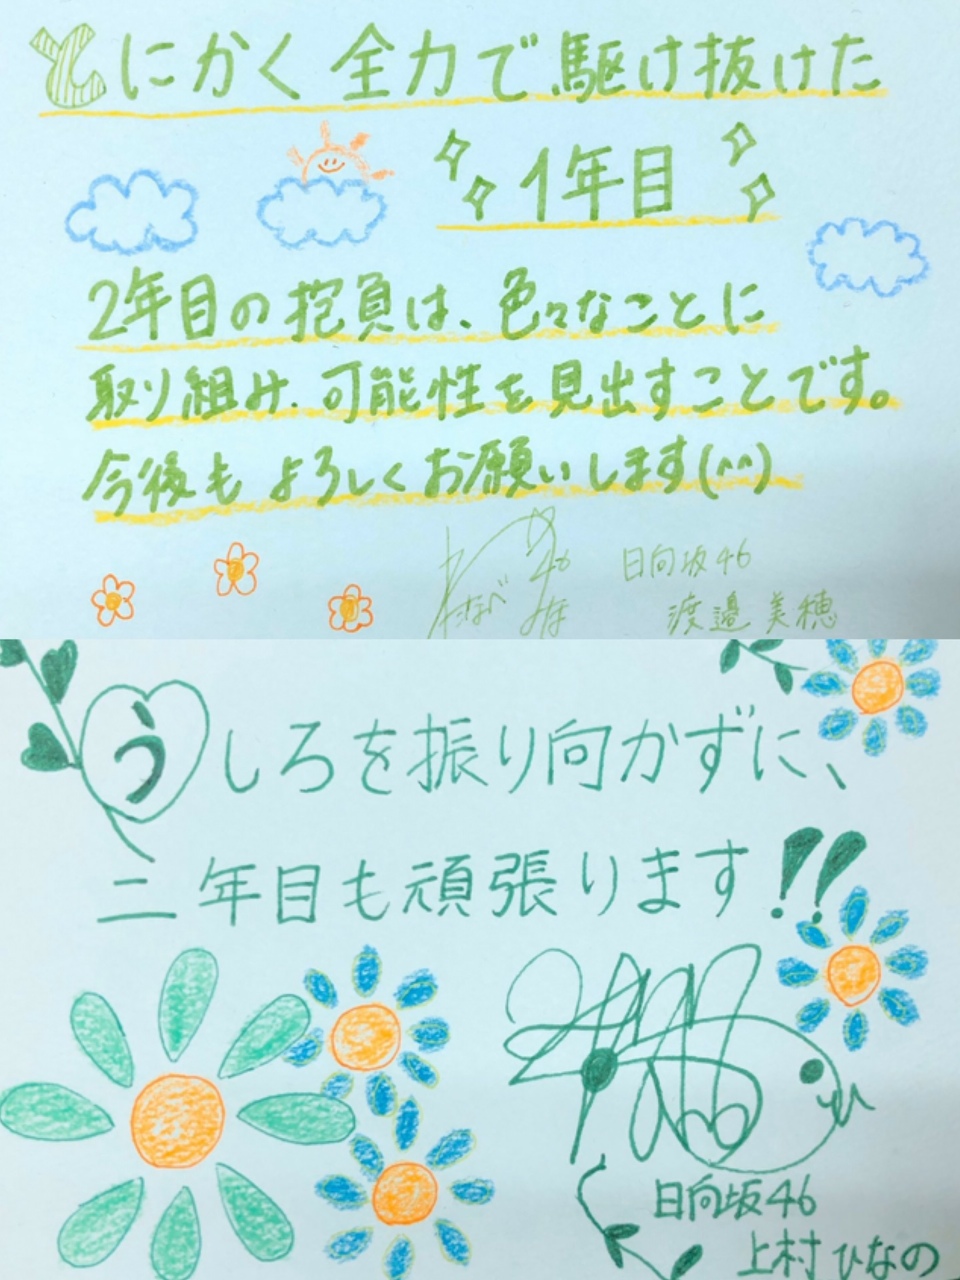 とにかく全力で駆け抜けた
1年目
2年目の抱負は、色々なことに
取り組み、可能性を見出すことです。
今後もよろしくお願いします(^^)
わたなべ みほ 46
日向坂46
渡邉美穂
うしろを振り向かずに、
二年目も頑張ります!!
日向坂46
上村ひなの